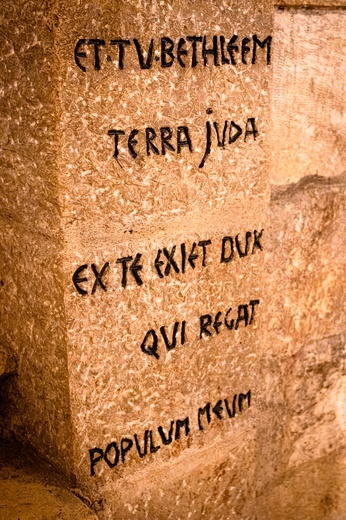 ET·TV·BETHLEEM
TERRA JUDA
EX TE EXIET DUX
QUI REGAT
POPULUM MEUM